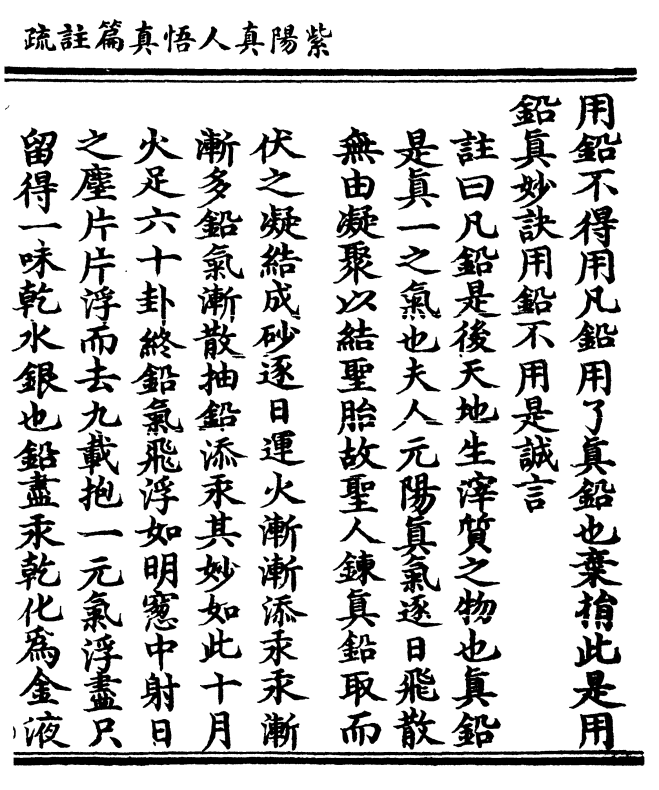 紫陽真人悟真篇註疏
用鉛不得用凡鉛用了真鉛也棄捐此是用
鉛真妙訣用鉛不用是誠言
註曰凡鉛是後天地生滓質之物也真鉛
是真一之氣也夫人元陽真氣逐日飛散
無由凝聚以結聖胎故聖人鍊真鉛取而
伏之凝結成砂逐日運火漸漸添汞汞漸
漸多鉛氣漸散抽鉛添汞其妙如此十月
火足六十卦終鉛氣飛浮如明窻中射日
之塵片片浮而去九載抱一元氣浮盡只
留得一味乾水銀也鉛盡汞乾化為金液